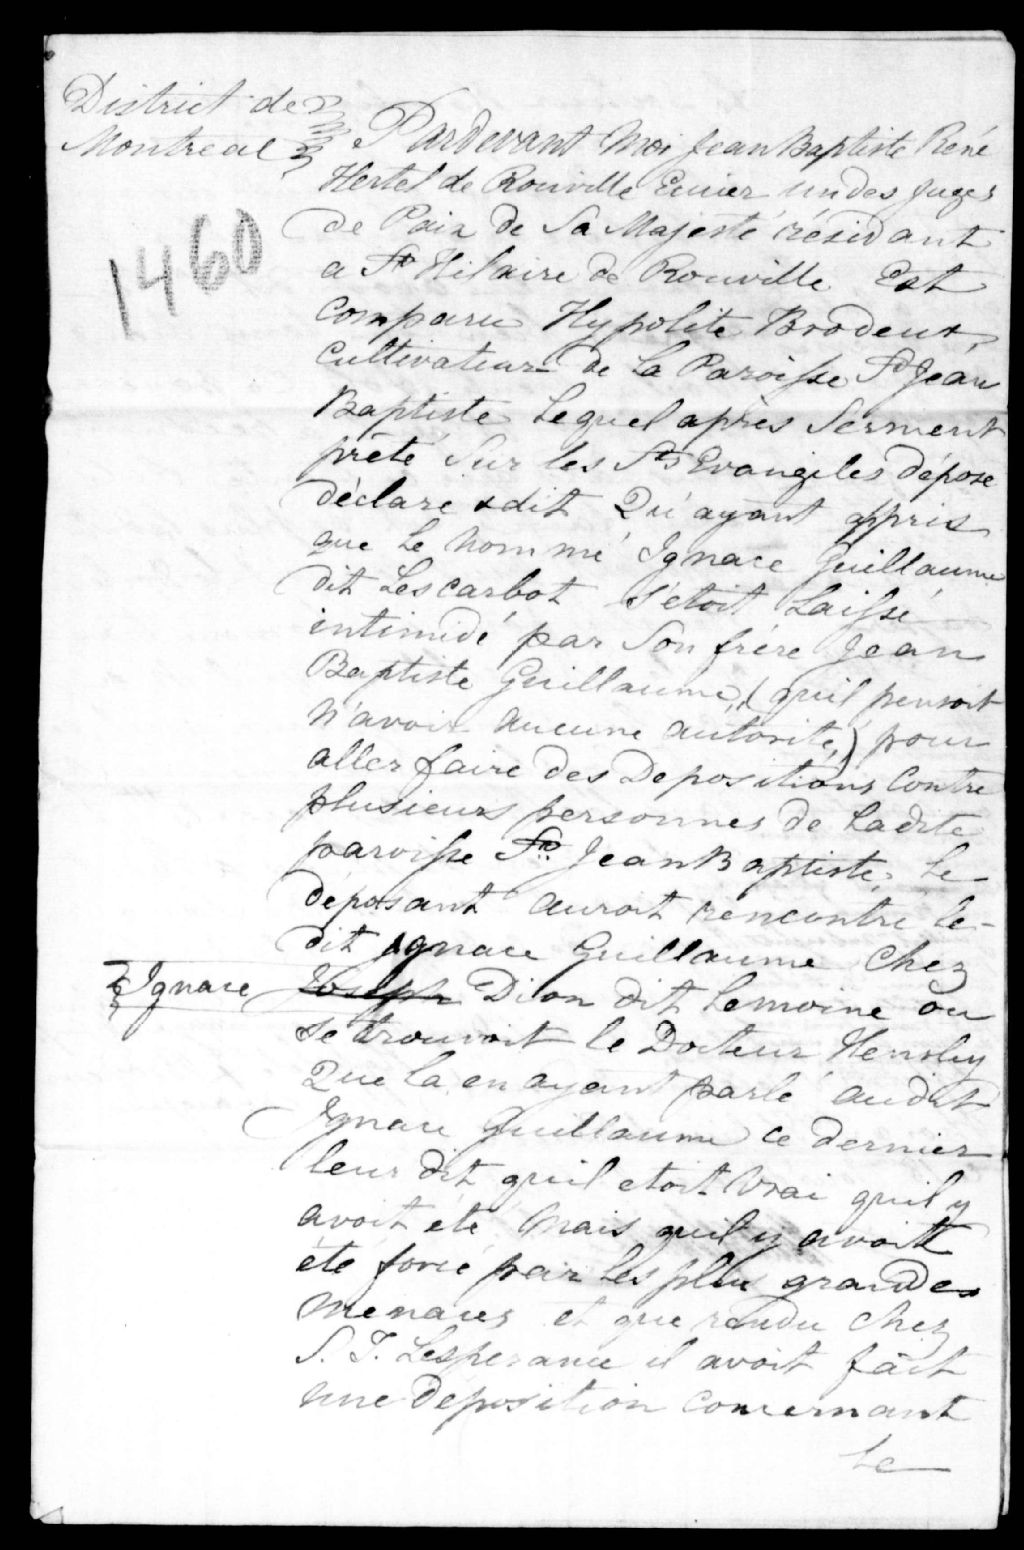 District de
Montreal
Pardevant Moi Jean Baptiste René
Hertel de Rouville Ecuier un des Juges
de Paix de Sa Majesté résidant
a St Hilaire de Rouville Est
Comparu Hypolite Brodeur,
Cultivateur de la Paroisse St Jean
Baptiste Lequel après Serment
prêté Sur les Sts Evangiles dépose
déclare & dit Qu'ayant appris
que le nommé Ignace Guillaume
dit Lescarbot s'étoit Laissé
intimidé par Son frère Jean
Baptiste Guillaume, (quil pensoit
n'avoir aucune autorité,) pour
aller faire des Depositions Contre
plusieurs personnes de Ladite
paroisse St Jean Baptiste, Le
déposant auroit rencontré le
dit Ignace Guillaume Chez
Ignace Joseph Dion dit Lemoine ou
se trouvoit le Docteur Hensley
Que la en ayant parlé audit
Ignace Guillaume ce dernier
leur dit quil etoit Vrai quil y
avoit été Mais quil y avoit
été forcé par les plus grandes
Menaces et que rendu Chez
S. T. Lesperance il avoit fait
une déposition concernant
Le
1460